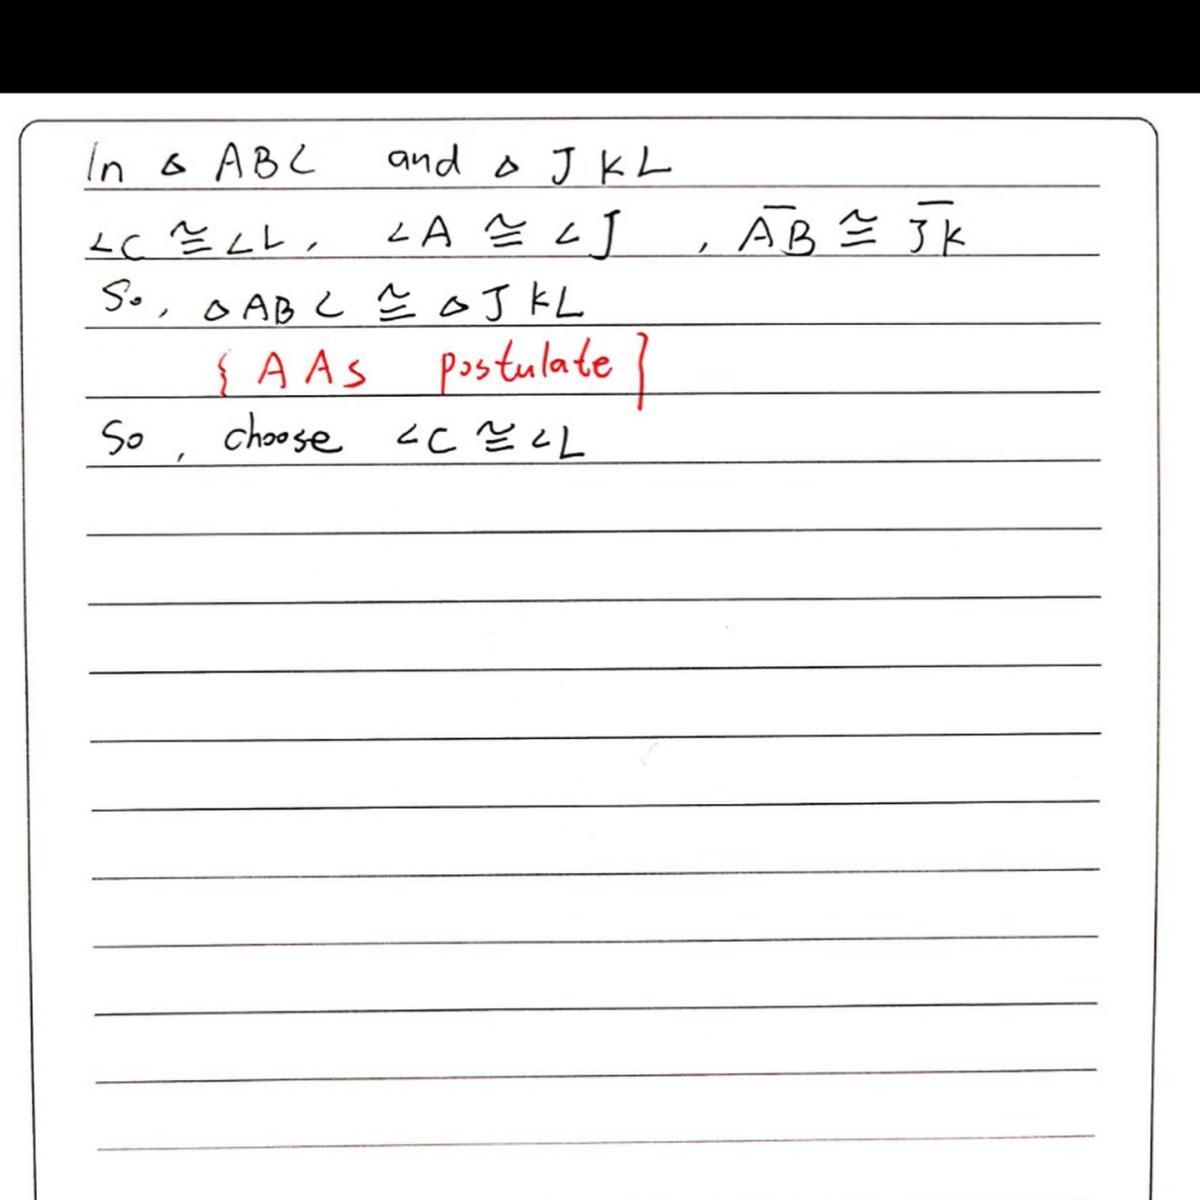 In △ ABC and △ JKL
∠C ≅ ∠L, ∠A ≅ ∠J , A̅B̅ ≅ J̅K̅
So, △ABC ≅ △JKL
{AAS postulate}
So, choose ∠C ≅ ∠L